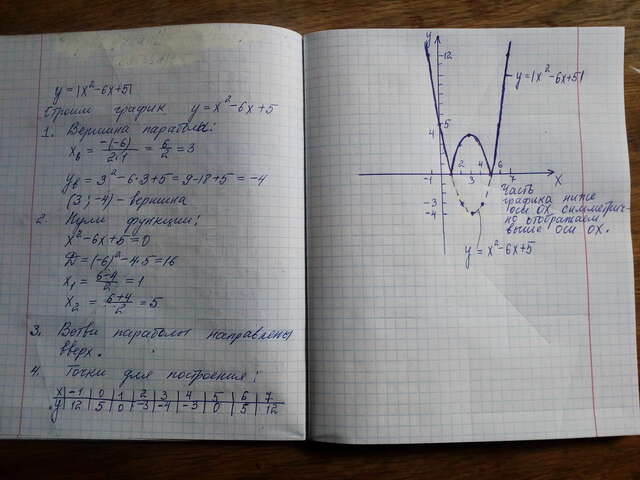 y = |x²-6x+5|
Строим график y = x²-6x+5
1. Вершина параболы:
xв = -(-6)/2·1 = 6/2 = 3
yв = 3²-6·3+5=9-18+5=-4
(3;-4) - вершина
2. Нули функции:
x²-6x+5=0
Д=(-6)²-4·5=16
x₁ = 6-4/2 = 1
x₂ = 6+4/2 = 5
3. Ветви параболы направлены
вверх.
4. Точки для построения:
x -1 0 1 2 3 4 5 6 7
y 12 5 0 -3 -4 -3 0 5 12
y
12
y=|x²-6x+5|
5
4
-1 2 3 4 6 7 X
-3
-4
Часть
графика ниже
оси OX симметрич-
но отображаем
выше оси OX.
y = x²-6x+5